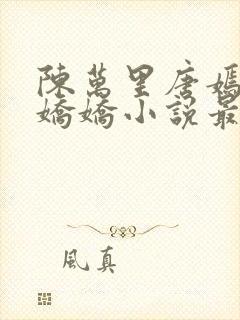 陳萬里唐嫣
嬌嬌小說最
風真